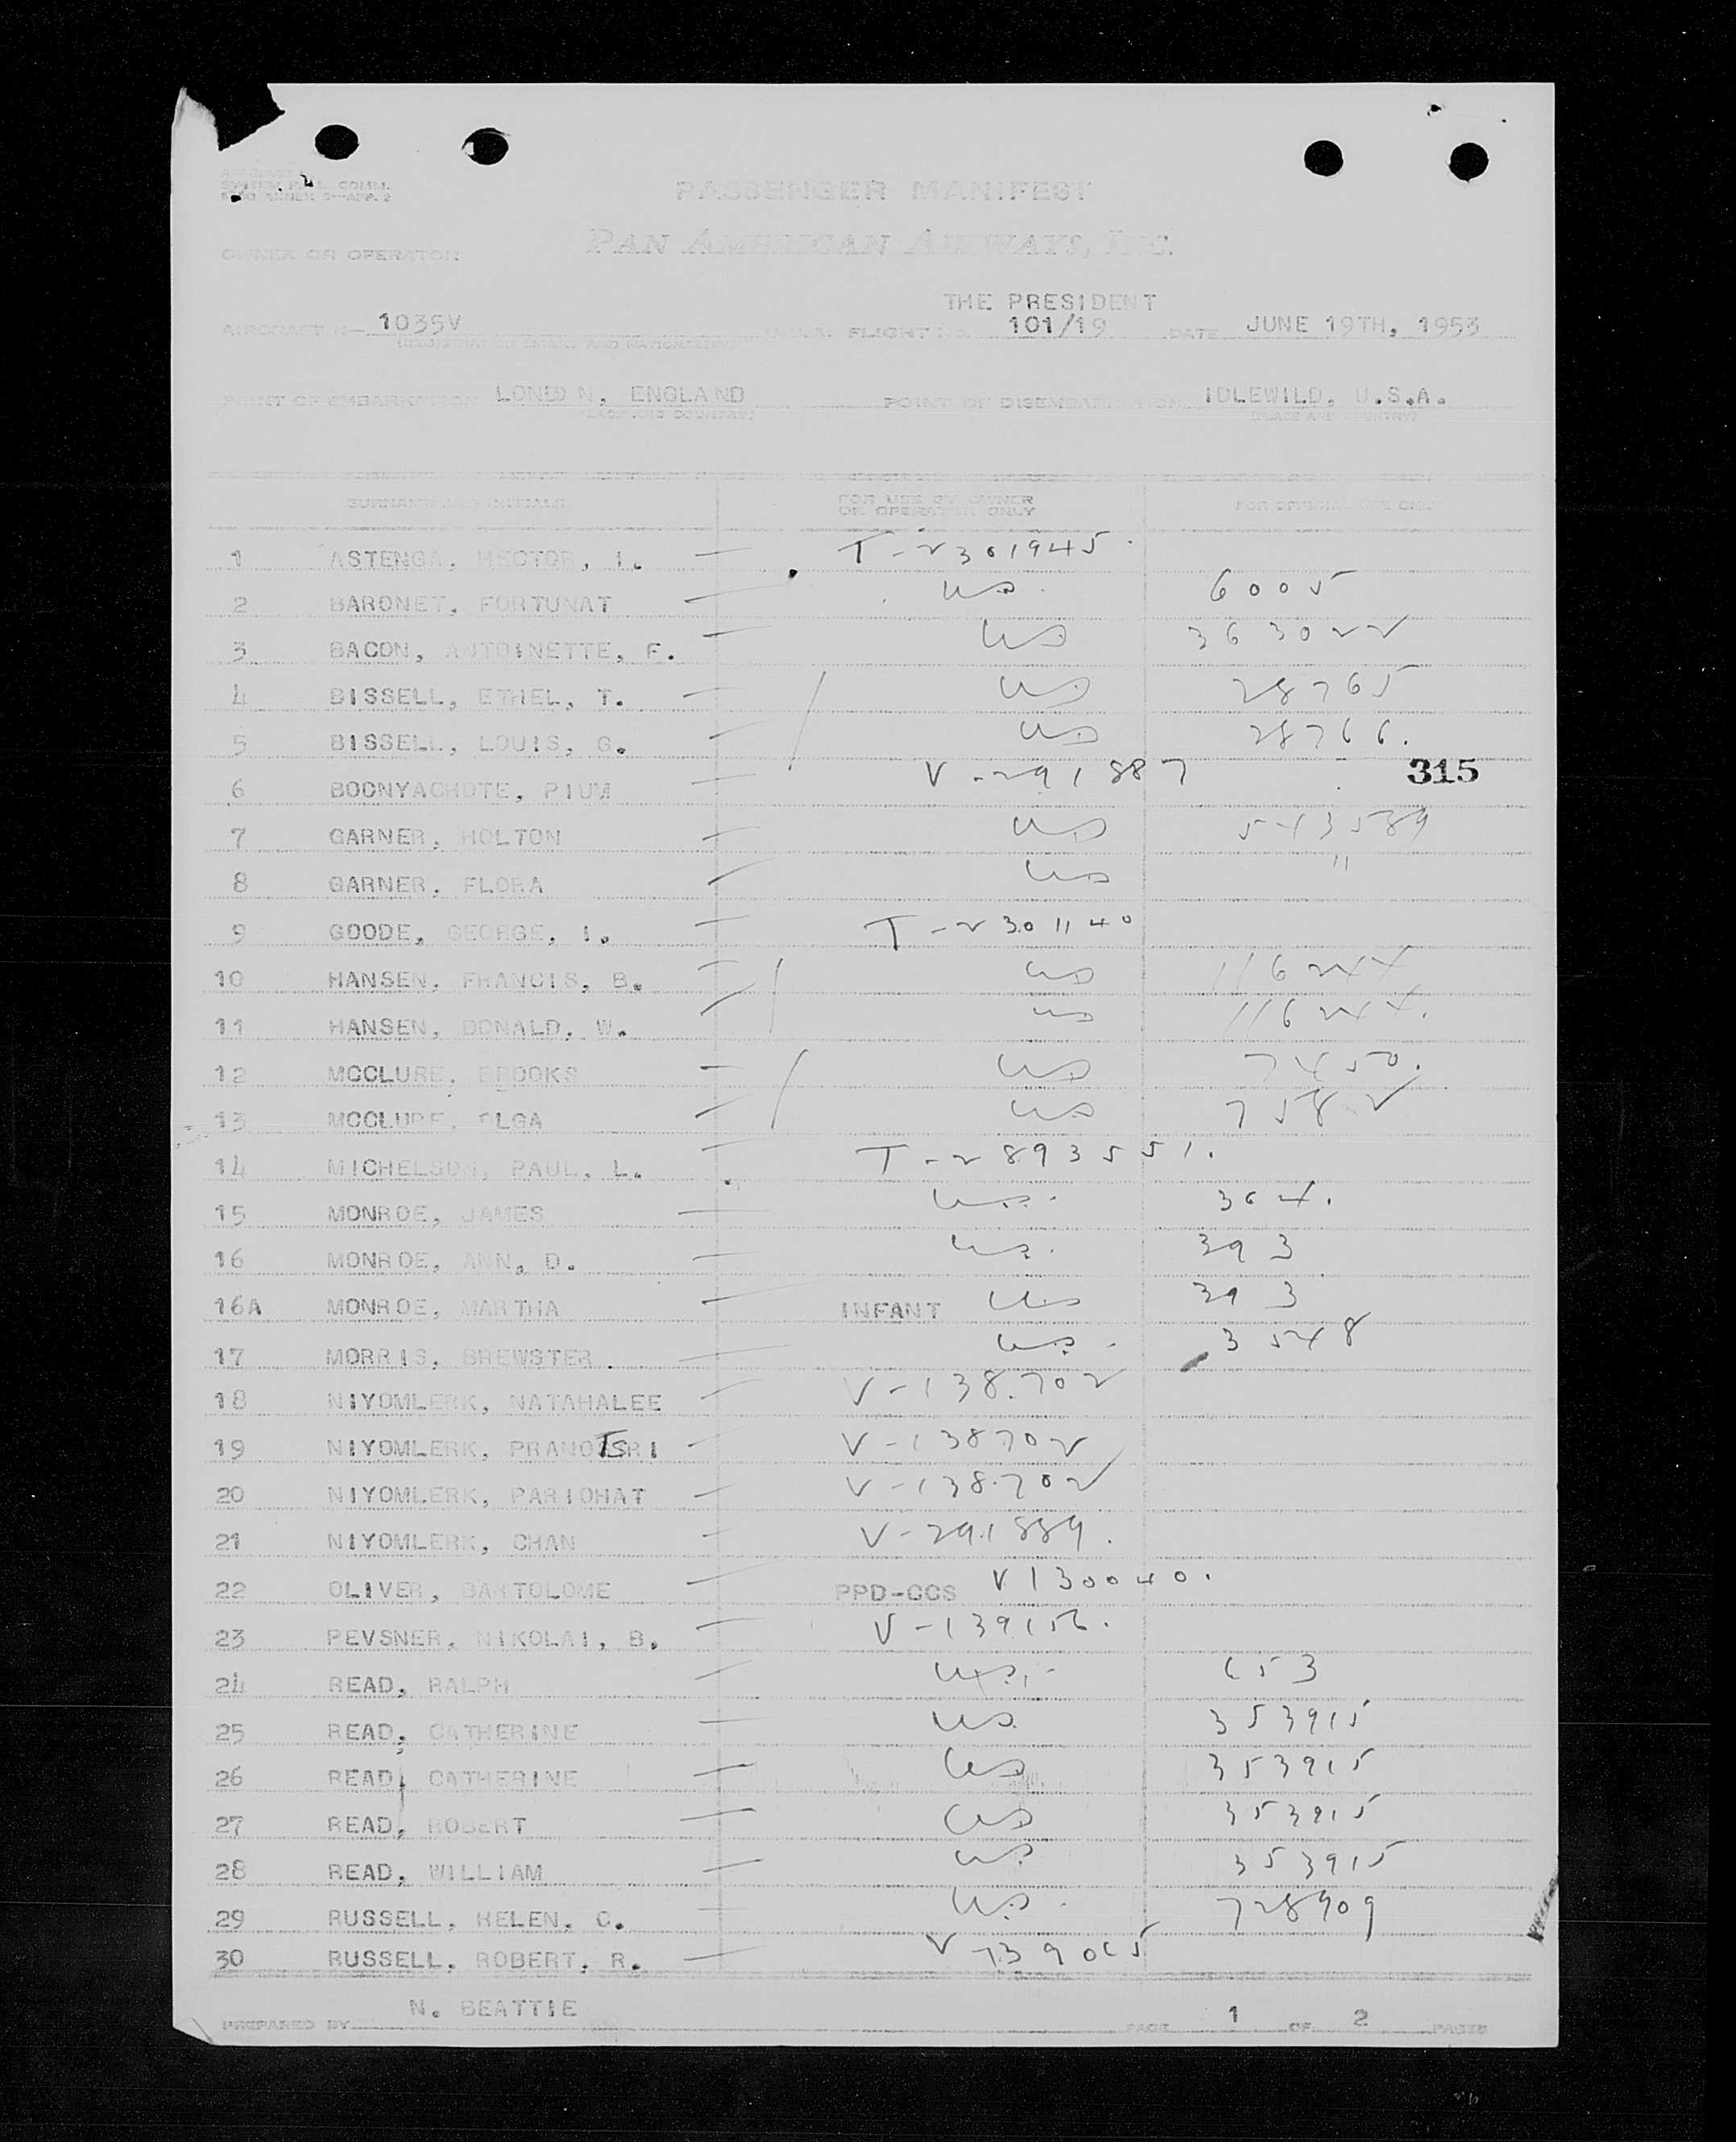 PASSENGER MANIFEST
OWNER OR OPERATOR PAN AMERICAN AIRWAYS, INC.
THE PRESIDENT
AIRCRAFT N— 1035V FLIGHT NO. 101/19 DATE JUNE 19TH, 1953
(REGISTRATION MARKS AND NATIONALITY)
POINT OF EMBARKATION LONDON, ENGLAND POINT OF DISEMBARKATION IDLEWILD, U.S.A.
(PLACE AND COUNTRY) (PLACE AND COUNTRY)
SURNAME AND INITIALS FOR USE BY OWNER OR OPERATOR ONLY FOR OFFICIAL USE ONLY
1 ASTENGA, HECTOR, I. — T-2301945
2 BARONET, FORTUNAT — US. 6005
3 BACON, ANTOINETTE, F. — US 363022
4 BISSELL, ETHEL, T. — US 28765
5 BISSELL, LOUIS, G. — US 28766.
6 BOONYACHOTE, PIUM — V-291887 315
7 GARNER, HOLTON — US 543589
8 GARNER, FLORA — US "
9 GOODE, GEORGE, I. — T-2301140
10 HANSEN, FRANCIS, B. — US 116244
11 HANSEN, DONALD, W. — US 116244.
12 MCCLURE, BROOKS — US 7450.
13 MCCLURE, OLGA — US 7582
14 MICHELSON, PAUL, L. — T-2893551.
15 MONROE, JAMES — US. 364.
16 MONROE, ANN, D. — US. 393
16A MONROE, MARTHA — INFANT US 393
17 MORRIS, BREWSTER. — US. 3548
18 NIYOMLERK, NATAHALEE — V-138702
19 NIYOMLERK, PRANOTSRI — V-138702
20 NIYOMLERK, PARIOHAT — V-138702
21 NIYOMLERK, CHAN — V-291889.
22 OLIVER, BARTOLOME — PPD-CCS V130040.
23 PEVSNER, NIKOLAI, B. — V-139156.
24 READ, RALPH — US. 653
25 READ, CATHERINE — US. 353915
26 READ, CATHERINE — US 353915
27 READ, ROBERT — US 353915
28 READ, WILLIAM — US 353915
29 RUSSELL, HELEN, C. — US. 728909
30 RUSSELL, ROBERT, R. — V 139065
PREPARED BY N. BEATTIE PAGE 1 OF 2 PAGES